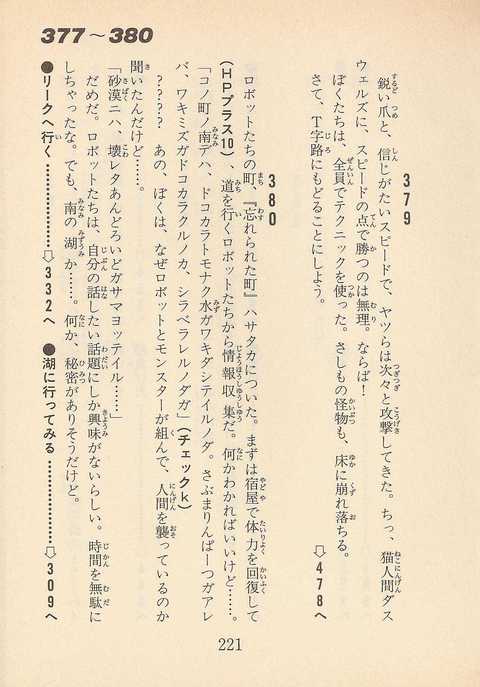 377〜380
379
鋭い爪と、信じがたいスピードで、ヤツらは次々と攻撃してきた。ちっ、猫人間ダス
ウェルズに、スピードの点で勝つのは無理。ならば！
ぼくたちは、全員でテクニックを使った。さしもの怪物も、床に崩れ落ちる。
さて、T字路にもどることにしよう。
⇨478へ
380
ロボットたちの町、『忘れられた町』ハサタカについた。まずは宿屋で体力を回復して
（HPプラス10）、道を行くロボットたちから情報収集だ。何かわかればいいけど……。
「コノ町ノ南デハ、ドコカラトモナク水ガワキダシテイルノダ。さぶまりんぱーつガアレ
バ、ワキミズガドコカラクルノカ、シラベラレルノダガ」（チェックk）
？？？？　あの、ぼくは、なぜロボットとモンスターが組んで、人間を襲っているのか
聞いたんだけど……。
「砂漠ニハ、壊レタあんどろいどガサマヨッテイル……」
だめだ。ロボットたちは、自分の話したい話題にしか興味がないらしい。時間を無駄に
しちゃったな。でも、南の湖か……。何か、秘密がありそうだけど。
●リークへ行く……………………⇨332へ　●湖に行ってみる……………………⇨309へ
221